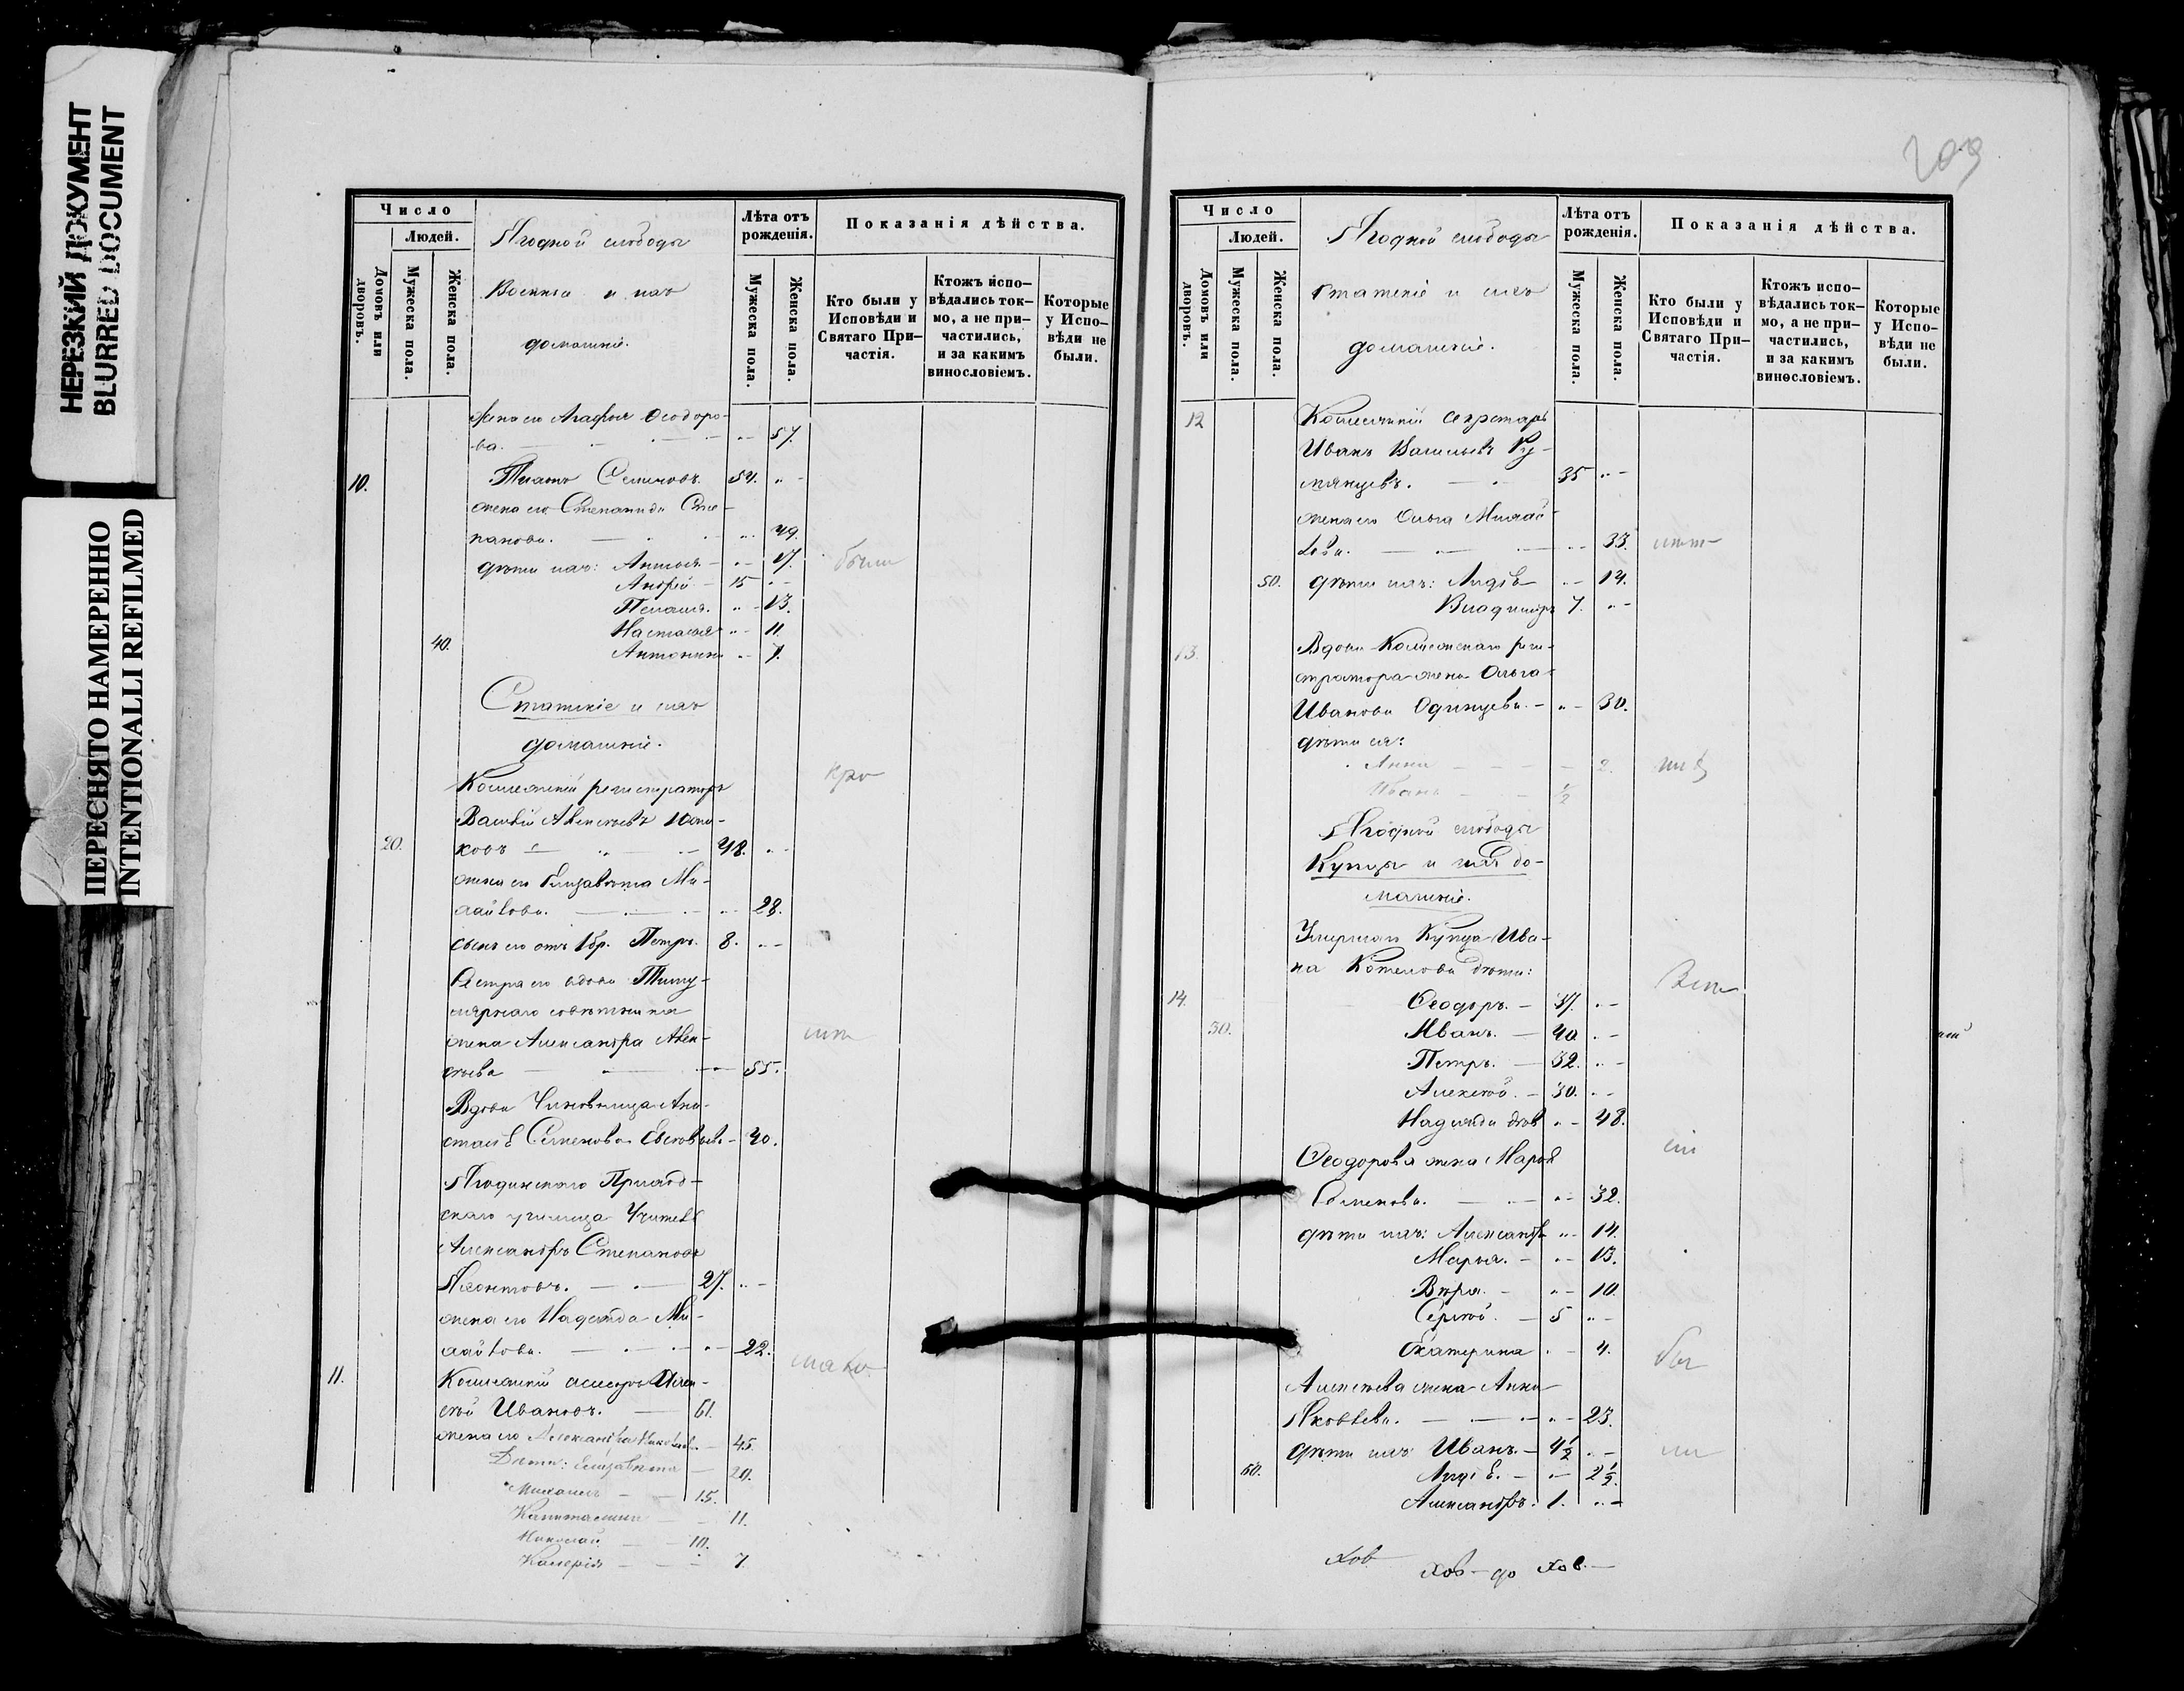 НЕРЕЗКИЙ ДОКУМЕНТ
BLURRED DOCUMENT
ПЕРЕСНЯТО НАМЕРЕННО
INTENTIONALLI REFILMED
Число
Людей.
Домовъ или дворовъ.
Мужеска пола.
Женска пола.
Ягодной слободы
Военные и ихъ
домашніе.
Лѣта отъ рожденія.
Мужеска пола.
Женска пола.
Показанія дѣйства.
Кто были у Исповѣди и Святаго Причастія.
Ктожъ исповѣдались токмо, а не причастились, и за какимъ винословіемъ.
Которые у Исповѣди не были.
жена его Агафья Ѳеодоро-
ва. 57.
10. Семеновъ. 54.
жена его Степанида Сте-
панова. 49.
дѣти ихъ: 17. были
Андрей 15
Пелагія. 13.
Настасья 11.
40. Антонина 7.
Статскіе и ихъ
домашніе.
Коллежскій регистраторъ
Василій Алексѣевъ
20. ковъ 48.
жена его Елизавета Ми-
хайлова. 28.
сынъ его отъ 1 бр. Петръ. 8.
Сестра его вдова Титу-
лярнаго совѣтника
жена Александра Алек-
сѣева 55.
Вдова Чиновница Ана-
стасія Семенова 40.
Ягодинскаго Приход-
скаго училища Учитель
Александръ Степановъ
Леонтовъ. 27.
жена его Надежда Ми-
хайлова. 22.
11. Коллежскій асессоръ Алек-
сѣй Ивановъ. 61.
жена его Александра Николаев. 45.
Дѣти: Елизавета 20.
Михаилъ 15.
Капитолина 11.
Николай 10.
Валерія 7.
209
Число
Людей.
Домовъ или дворовъ.
Мужеска пола.
Женска пола.
Ягодной слободы
Статскіе и ихъ
домашніе.
Лѣта отъ рожденія.
Мужеска пола.
Женска пола.
Показанія дѣйства.
Кто были у Исповѣди и Святаго Причастія.
Ктожъ исповѣдались токмо, а не причастились, и за какимъ винословіемъ.
Которые у Исповѣди не были.
12 Коллежскій секретарь
Иванъ Васильевъ Ру-
мянцевъ. 35
жена его Ольга Михай-
лова. 33.
50. дѣти ихъ: Лидія 14.
Владиміръ 7.
13. Вдова Коллежскаго реги-
стратора жена Ольга
Иванова Одинцева. 30.
дѣти ея:
Анна 2.
Иванъ ½
Ягодной слободы
Купцы и ихъ до-
машніе.
Умершаго Купца Ива-
на Котелова дѣти:
14. Ѳеодоръ. 37.
30. Иванъ. 40
Петръ. 32.
Алексѣй. 30.
Надежда 48.
Ѳеодорова жена Марья
Семенова. 32.
дѣти ихъ: Александра 14.
Марья. 13.
Вѣра. 10.
Сергѣй. 5
Екатерина 4.
Алексѣева жена Анна
Яковлева. 23.
дѣти ихъ: Иванъ. 4½
60. Лидія. 2½.
Александръ. 1.